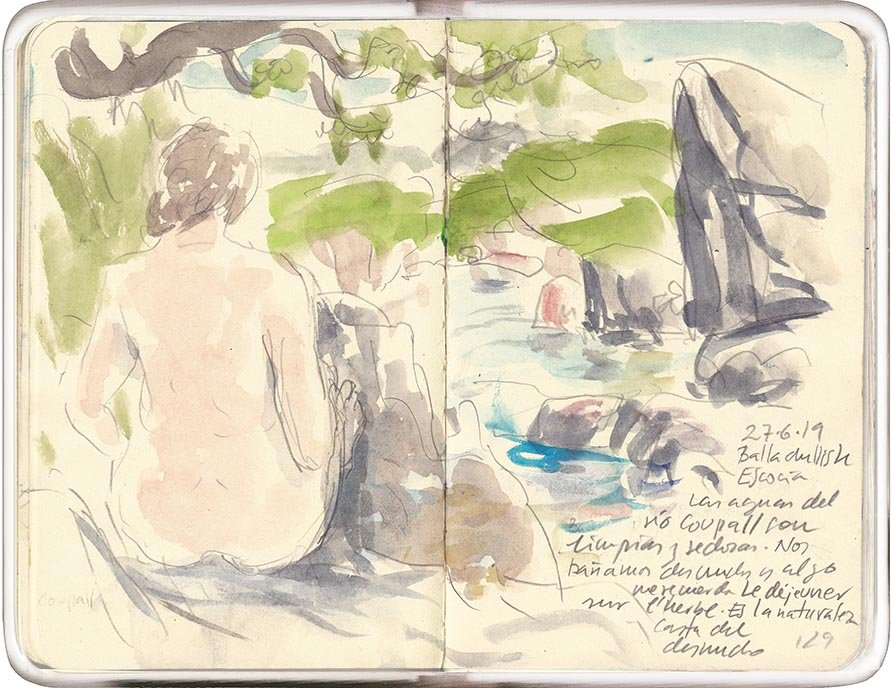 27.6.19
Balladullish
Escocia
Las aguas del
río Coupall son
limpias y sedosas. Nos
bañamos desnudos y algo
me recuerda Le déjeuner
sur l'herbe. Es la naturaleza
casta del
desnudo
129
Coupall